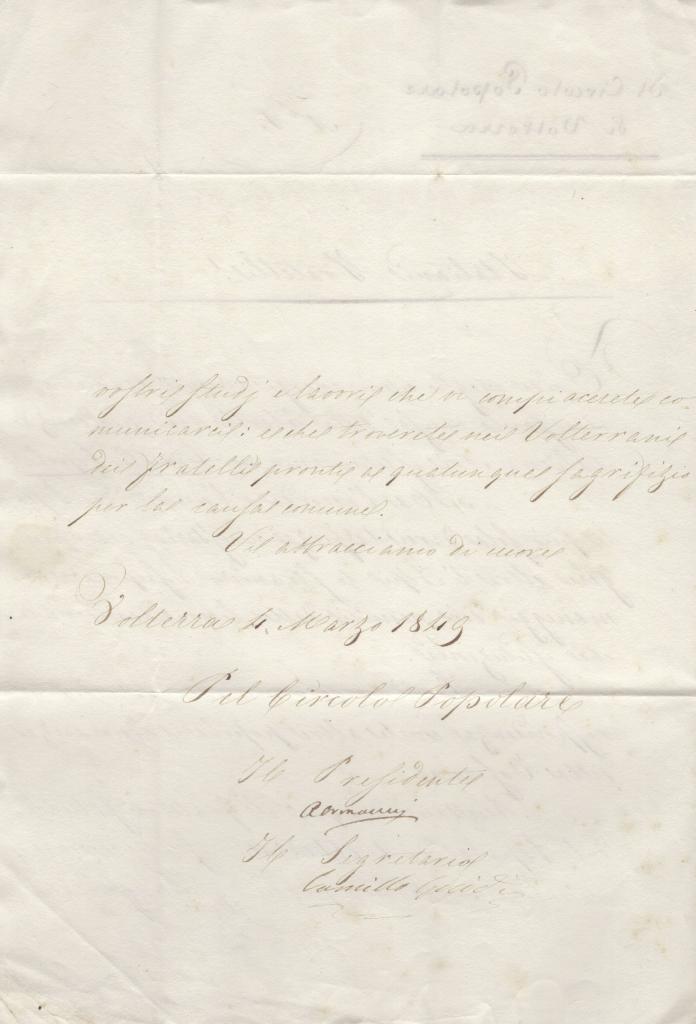 vostri studj e lavori che vi compiacerete co-
municarci: e che troverete nei Volterrani
dei fratelli pronti a qualunque sagrifizio
per la causa comune.
Vi abbracciamo di cuore
Volterra 4. Marzo 1849
Pel Circolo Popolare
Il Presidente
Il Segretario
Camillo